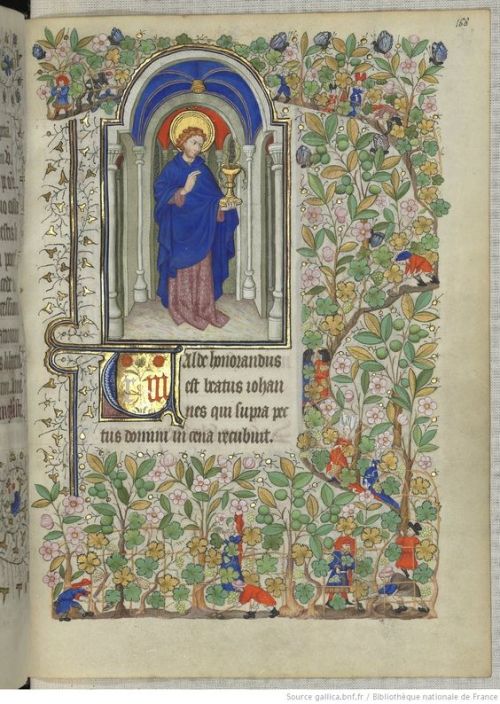 168
Valde honorandus
est beatus iohan
nes qui supra pec
tus domini in cena recubuit.
Source gallica.bnf.fr / Bibliothèque nationale de France